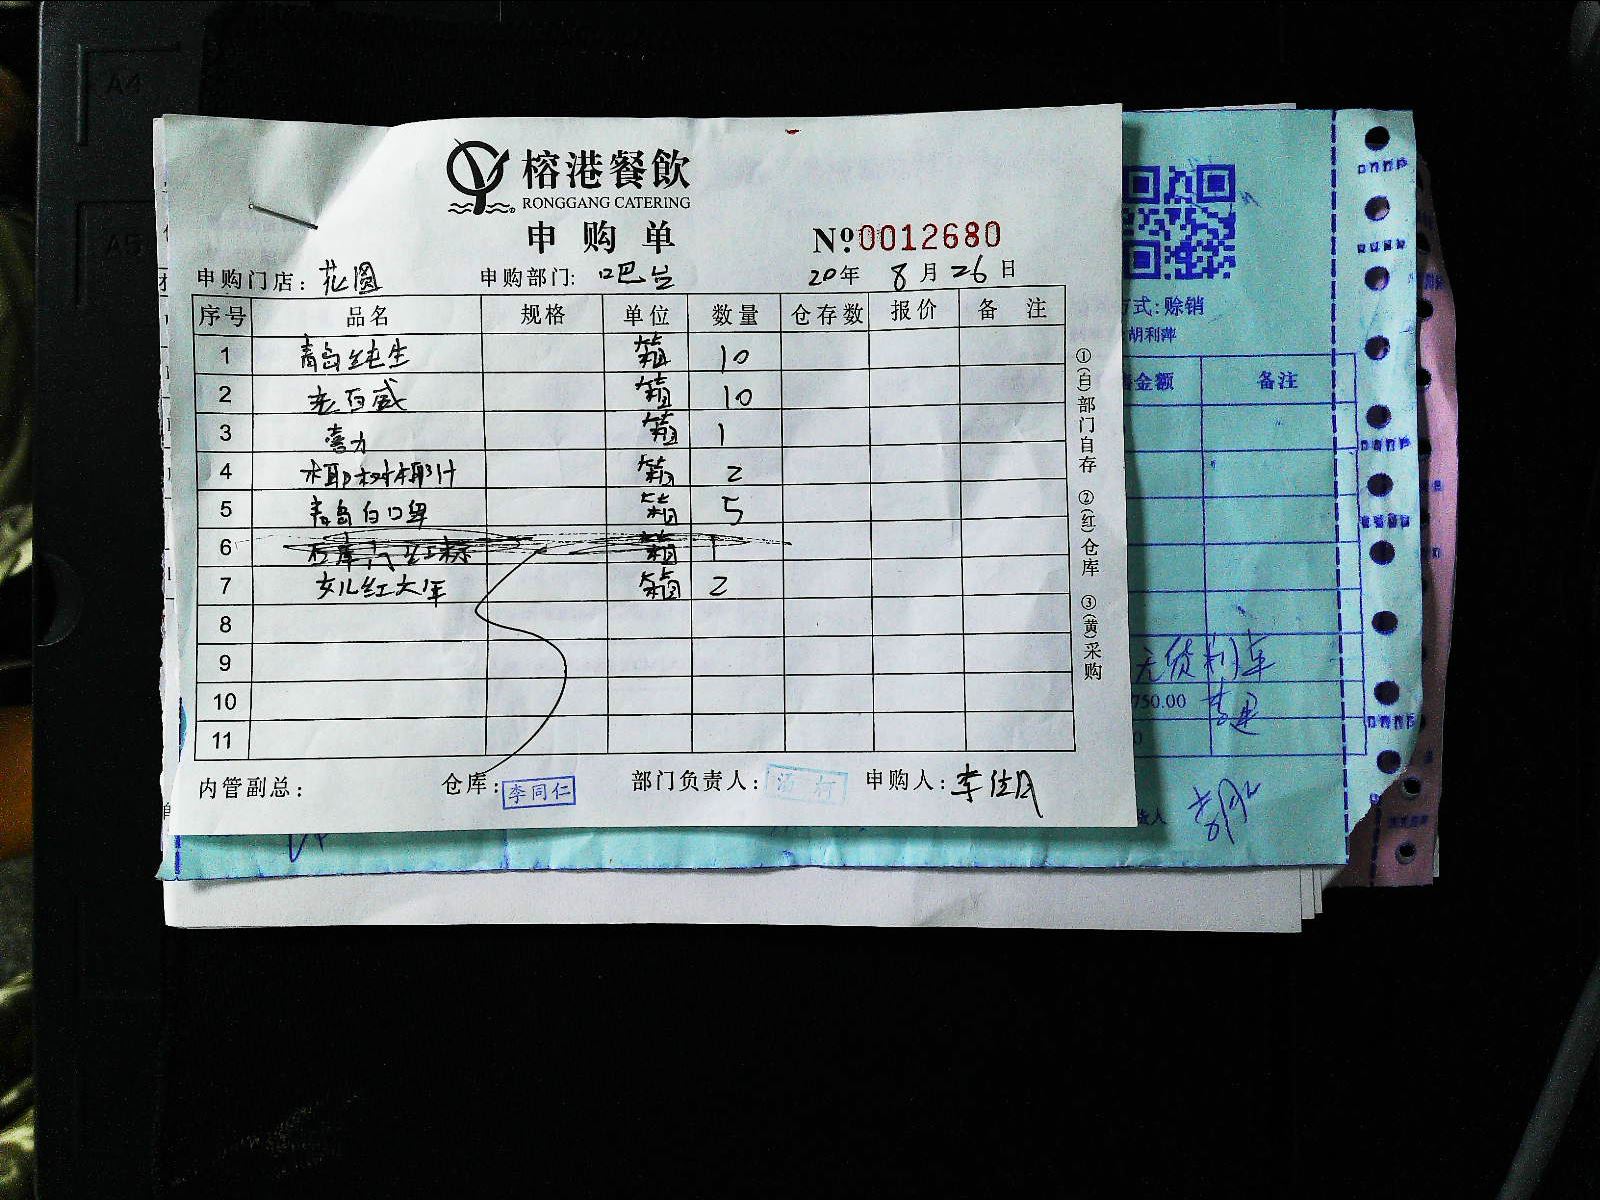 榕港餐飲
RONGGANG CATERING
申购单
№0012680
申购门店：花圆 申购部门：吧台 20年 8月26日
序号 品名 规格 单位 数量 仓存数 报价 备注
1 青岛纯生 箱 10
2 老百威 箱 10
3 喜力 箱 1
4 椰树椰汁 箱 2
5 青岛白啤 箱 5
6 石库门红标 箱 1
7 女儿红六年 箱 2
8
9
10
11
①(白)部门自存 ②(红)仓库 ③(黄)采购
内管副总： 仓库：李同仁 部门负责人： 申购人：李佳
方式：赊销
胡利萍
金额 备注
无货
750.00
A4
A5